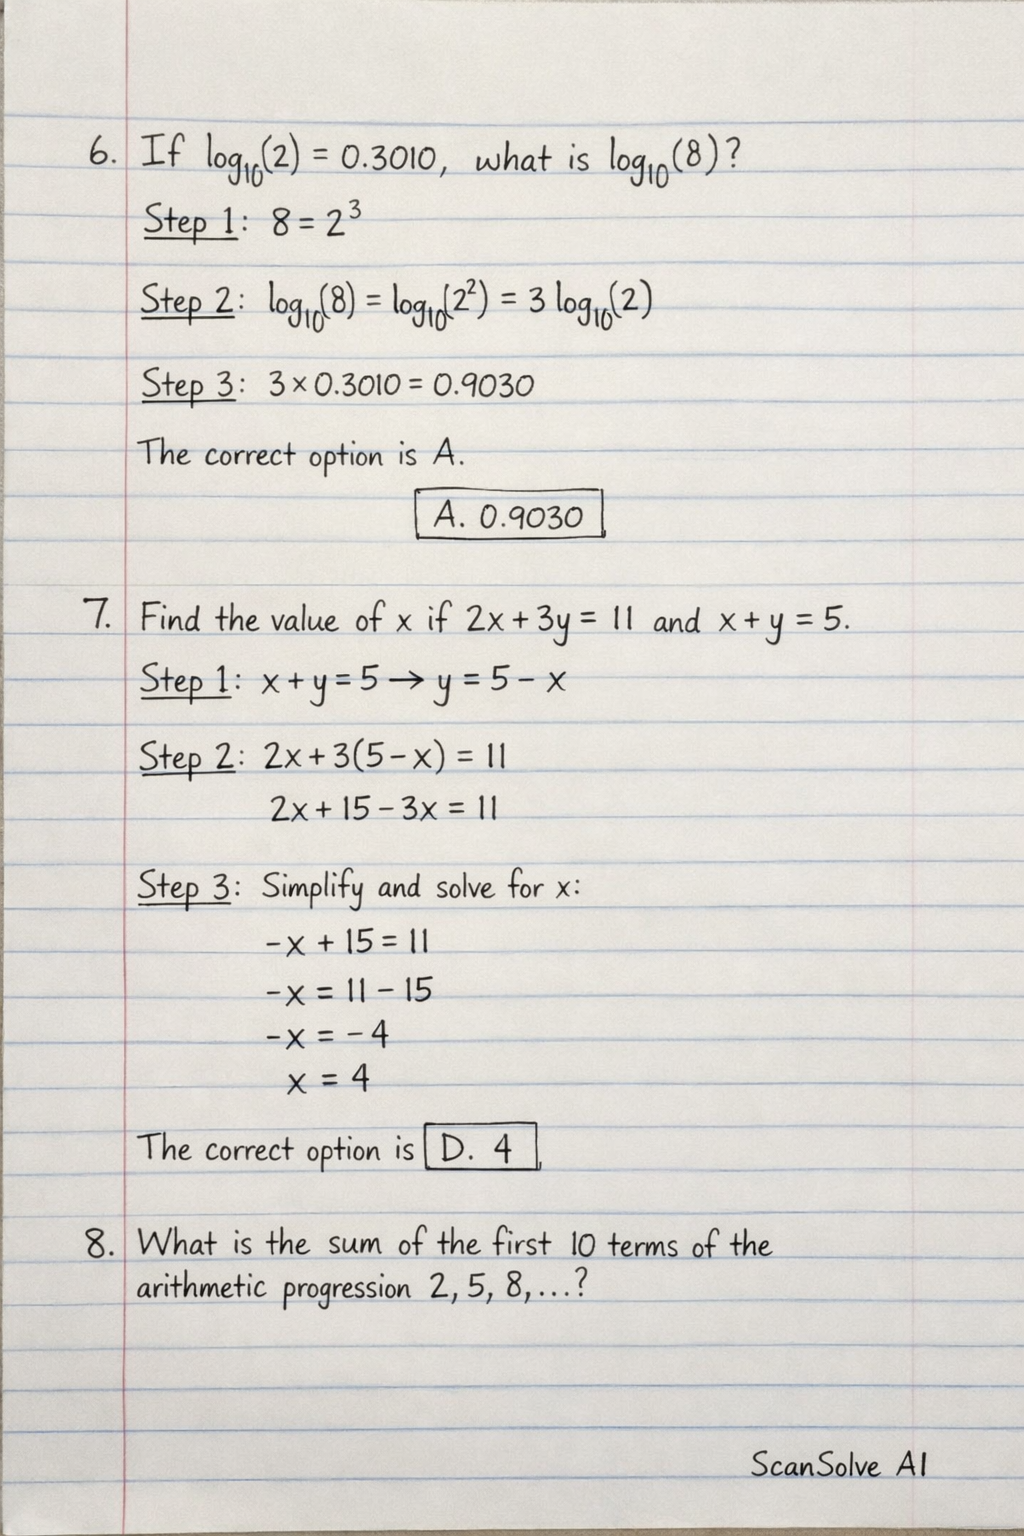 6. If log₁₀(2) = 0.3010, what is log₁₀(8)?
Step 1: 8 = 2³
Step 2: log₁₀(8) = log₁₀(2²) = 3 log₁₀(2)
Step 3: 3 × 0.3010 = 0.9030
The correct option is A.
A. 0.9030
7. Find the value of x if 2x + 3y = 11 and x + y = 5.
Step 1: x + y = 5 → y = 5 - x
Step 2: 2x + 3(5 - x) = 11
2x + 15 - 3x = 11
Step 3: Simplify and solve for x:
-x + 15 = 11
-x = 11 - 15
-x = -4
x = 4
The correct option is D. 4
8. What is the sum of the first 10 terms of the
arithmetic progression 2, 5, 8,...?
ScanSolve AI